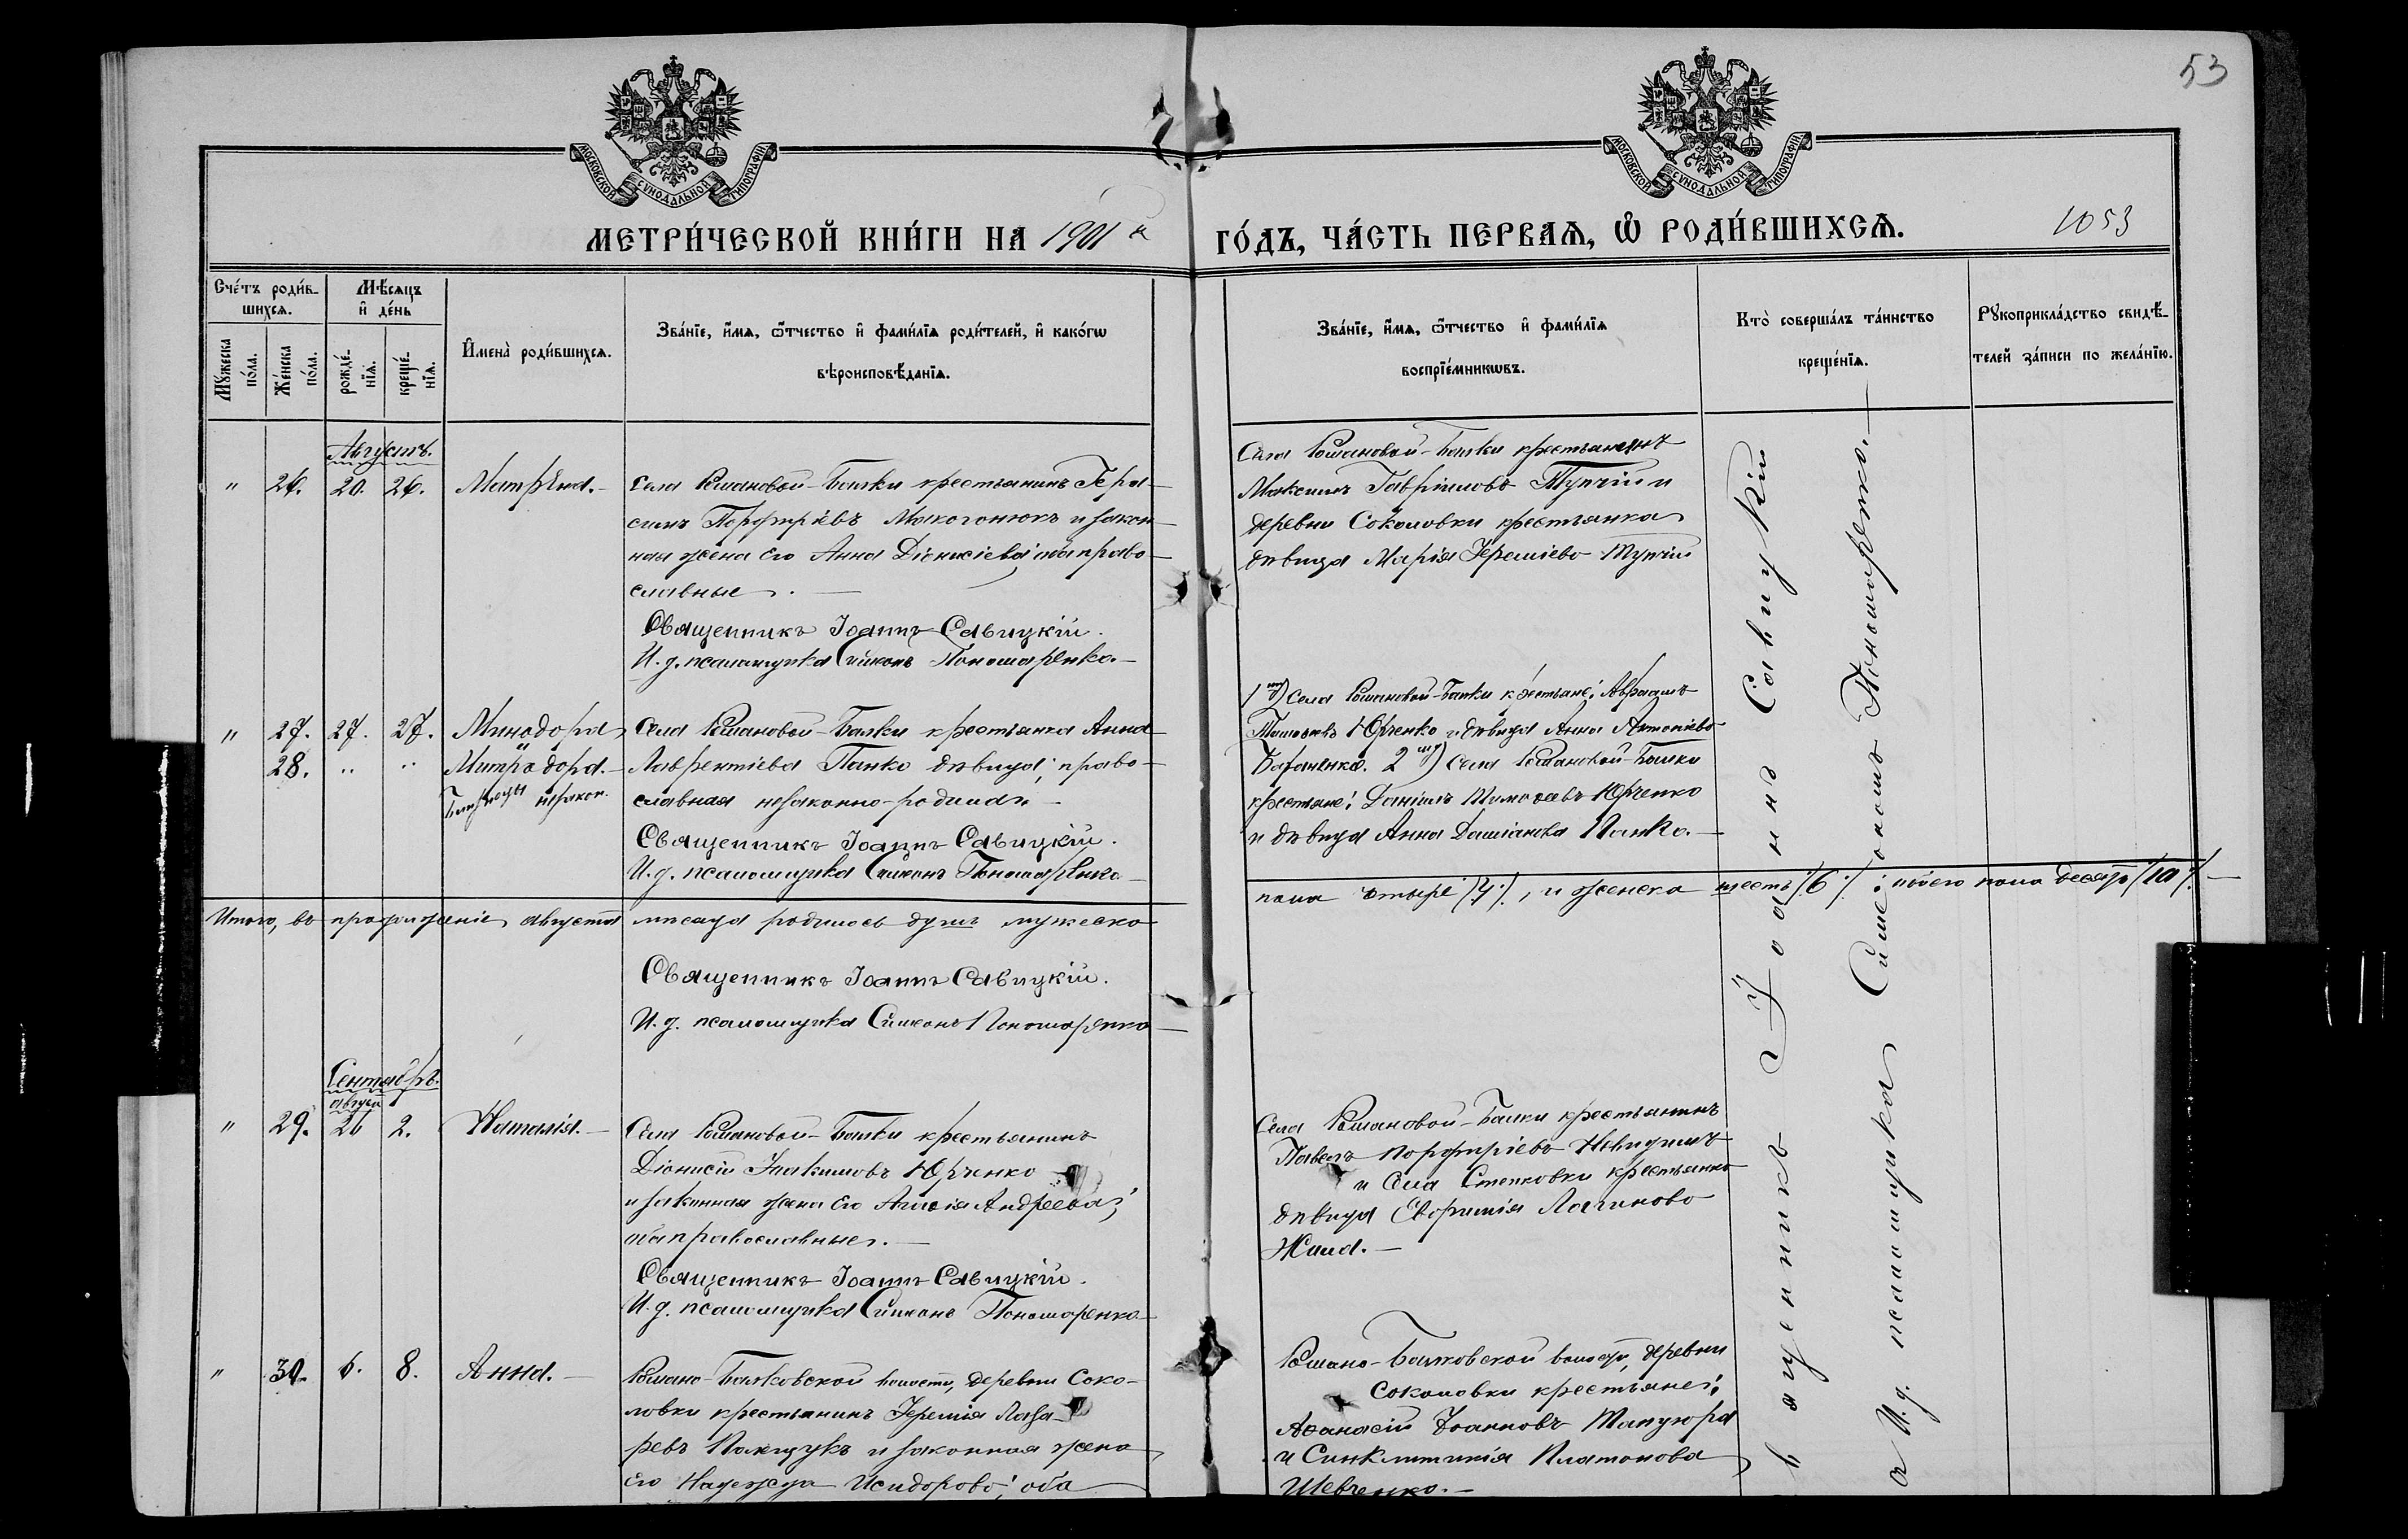 53
МОСКОВСКОЙ СУНОДАЛЬНОЙ ТИПОГРАФІИ
МОСКОВСКОЙ СУНОДАЛЬНОЙ ТИПОГРАФІИ
МЕТРИ́ЧЕСКОЙ КНИ́ГИ НА 1901й ГО́ДЪ, ЧА́СТЬ ПЕРВАѦ, Ѡ РОДИ́ВШИХСѦ.
1053
Сче́тъ роди́в-
шихсѧ.
Мꙋжеска по́ла.
Же́нска по́ла.
Мѣ́сѧцъ
и҆ де́нь
рожде́-
нїѧ.
креще́-
нїѧ.
И҆мена̀ роди́вшихсѧ.
Зва́нїе, и҆́мѧ, ѻ҆́тчество и҆ фами́лїѧ роди́телей, и҆ како́гѡ
вѣроисповѣ́данїѧ.
Зва́нїе, и҆́мѧ, ѻ҆́тчество и҆ фами́лїѧ
воспрїе́мникѡвъ.
Кто̀ соверша́лъ та́инство
креще́нїѧ.
Рꙋкоприкла́дство свидѣ́-
телей за́писи по жела́нїю.
Августъ.
" 26. 20. 26. Матрёна.-
Села Романовой-Балки крестьянинъ Гера-
симъ Порфиріевъ Макогонюкъ и закон-
ная жена его Анна Діонисіева; оба право-
славные.
Священникъ Іоаннъ Савицкій.
И. д. псаломщика Симеонъ Пономаренко.-
Села Романовой-Балки крестьянинъ
Максимъ Гавріиловъ Тупчій и
деревни Соколовки крестьянка
дѣвица Марія Іереміева Тупчій
" 27. 27. 27. Минодора
28. " " Митродора.-
Близнецы незакон.
Села Романовой-Балки крестьянка Анна
Лаврентіева Панко дѣвица; право-
славная незаконно-родила.
Священникъ Іоаннъ Савицкій.
И. д. псаломщика Симеонъ Пономаренко
1й) Села Романовой-Балки крестьяне: Авраамъ
Юрченко и дѣвица Анна Антоніева
2й) Села Романовой-Балки
крестьяне: Даніилъ Тимоѳеевъ Юрченко
и дѣвица Анна Даміанова Панко.-
Итого, въ продолженіе августа мѣсяца родилось душъ мужеска
пола четыре /4/, и женска шесть /6/; обоего пола десять /10/.-
Священникъ Іоаннъ Савицкій.
И. д. псаломщика Симеонъ Пономаренко
Сентябрь.
август
" 29. 26 2. Наталія.-
Села Романовой-Балки крестьянинъ
Діонисій Іоакимовъ Юрченко
и законная жена его Андреева;
оба православные.-
Священникъ Іоаннъ Савицкій.
И. д. псаломщика Симеонъ Пономаренко.-
Села Романовой-Балки крестьянинъ
Павелъ Порфиріевъ
и Села Степковки крестьянка
дѣвица Евфимія Логинова
" 30. 6. 8. Анна.-
Романо-Балковской волости, деревни Соко-
ловки крестьянинъ Іеремія Лаза-
ревъ и законная жена
его Надежда Исидорова; оба
Романо-Балковской волости, деревни
Соколовки крестьяне:
Аѳанасій Іоанновъ
и Синклитикія Платонова
Шевченко.-
Священникъ Іоаннъ Савицкій
И. д. псаломщика Симеонъ Пономаренко.-